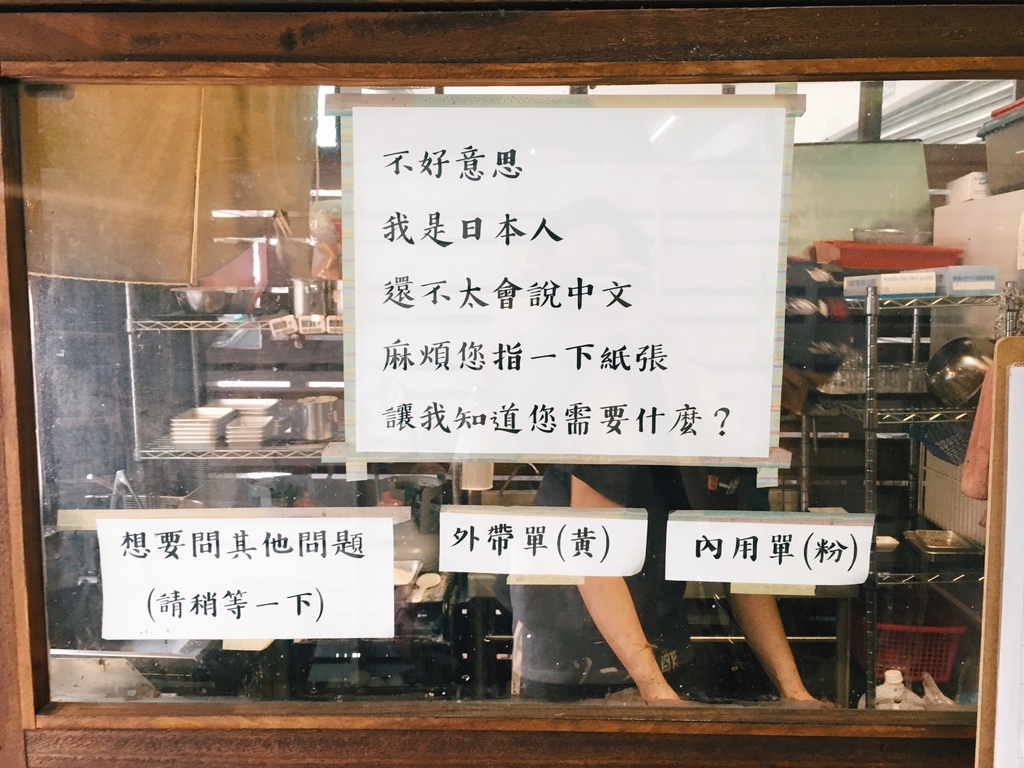 不好意思
我是日本人
還不太會說中文
麻煩您指一下紙張
讓我知道您需要什麼？
想要問其他問題
(請稍等一下)
外帶單(黃)
內用單(粉)